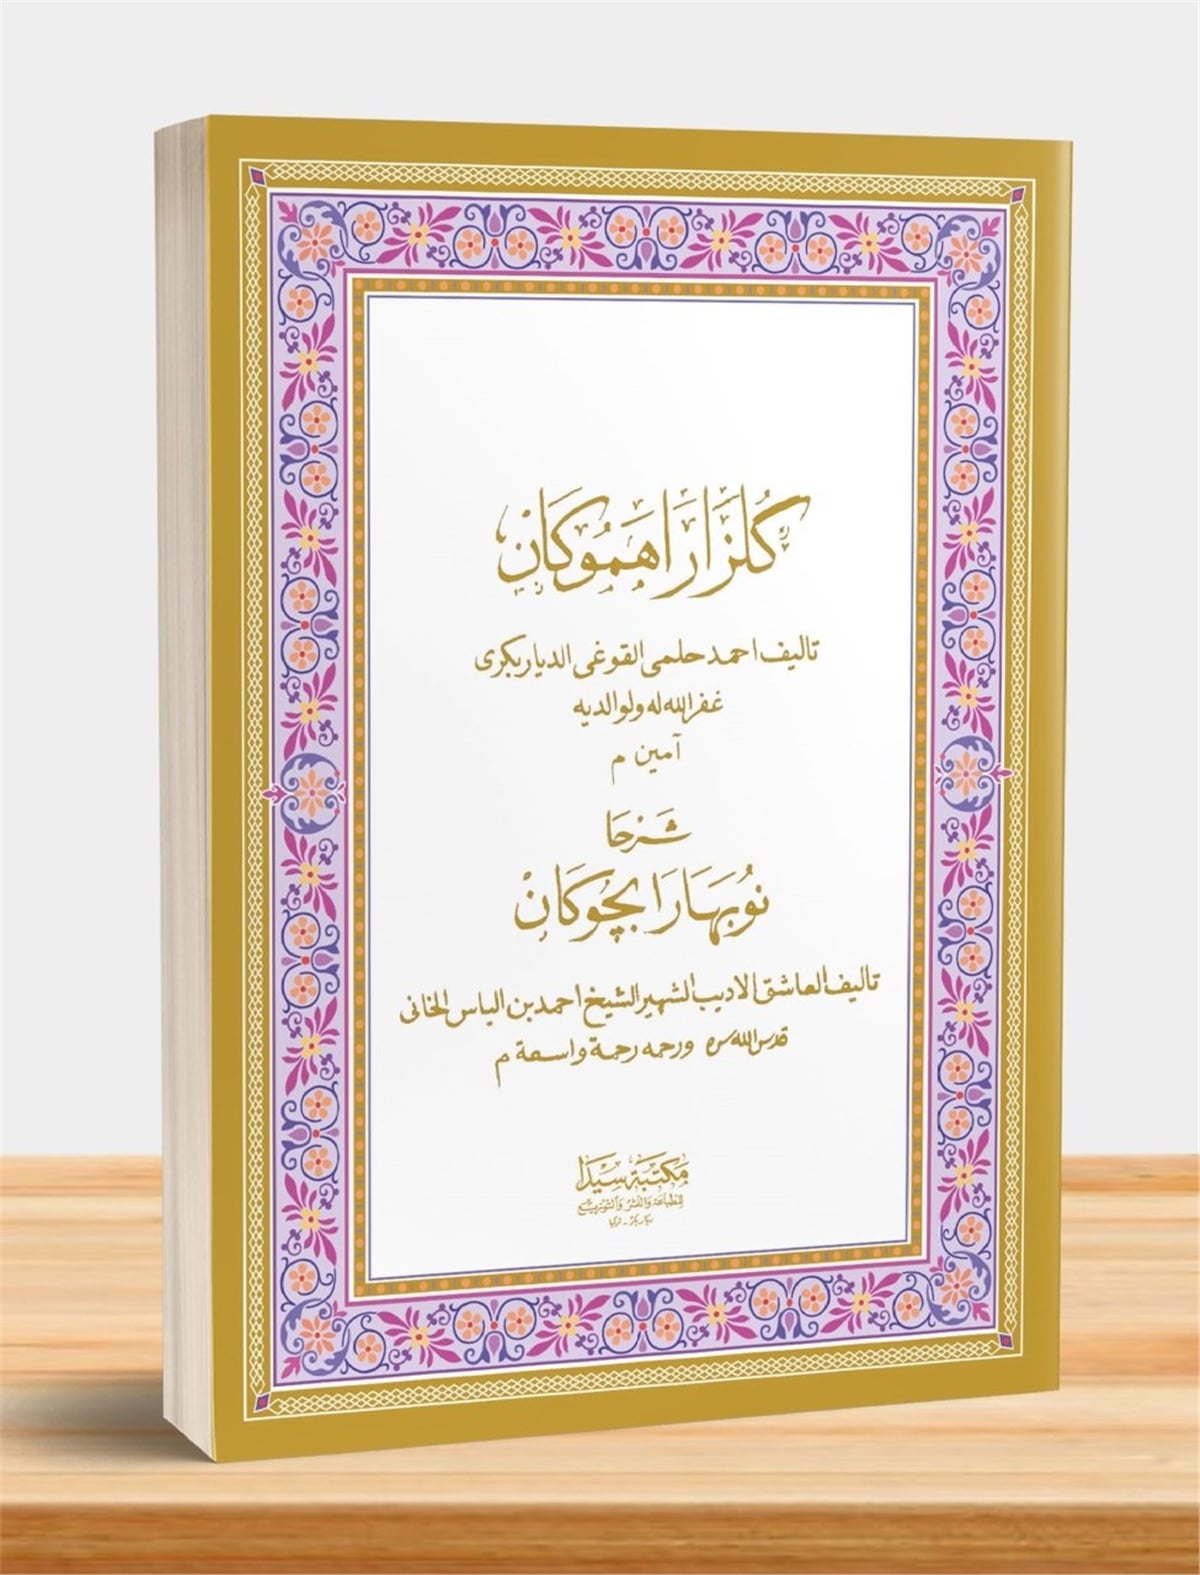 كُلزَارَا هَمُوكَان
تاليف احمد حلمى القوغى الدياربكرى
غفر الله له ولوالديه
آمين م
شَرحَا
نُوبَهَارَا بچُوكَان
تاليف العاشق الاديب الشهير الشيخ احمد بن الياس الخانى
قدس الله سره ورحمه رحمة واسعة م
مكتبة سيدا
للطباعة والنشر والتوزيع
ديار بكر - تركيا